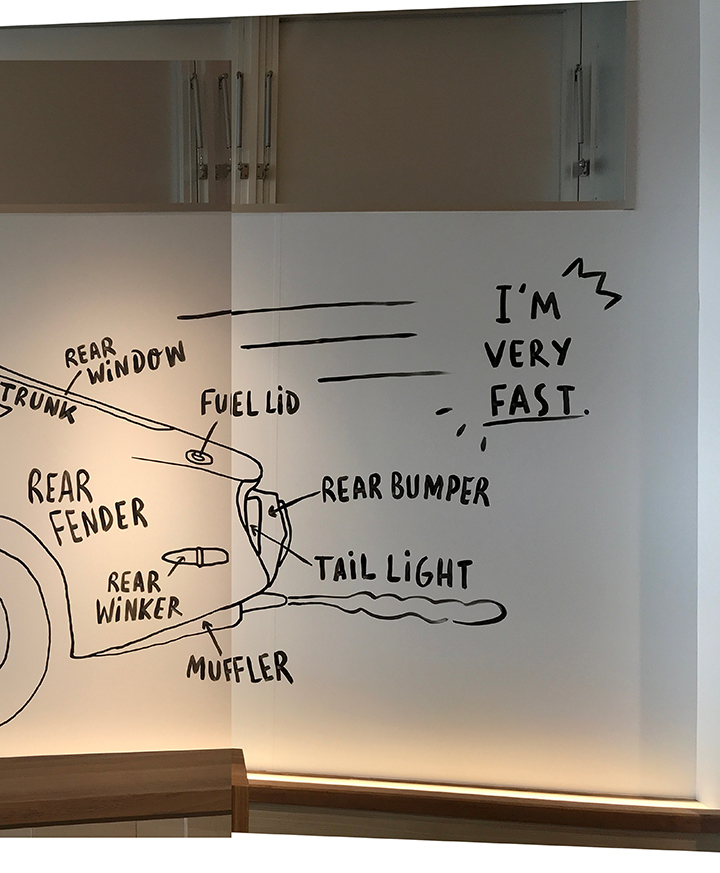 I'M
VERY
FAST.
REAR
WiNDOW
TRUNK
FUEL LiD
REAR
FENDER
REAR BUMPER
TAiL LiGHT
REAR
WiNKER
MUFFLER